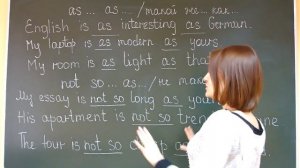 as ... as ... /такой же... как...
English is as interesting as German.
My laptop is as modern as yours
My room is as light as that
not so ... as... /не
My essay is not so long as
His apartment is not so
The tour is not so